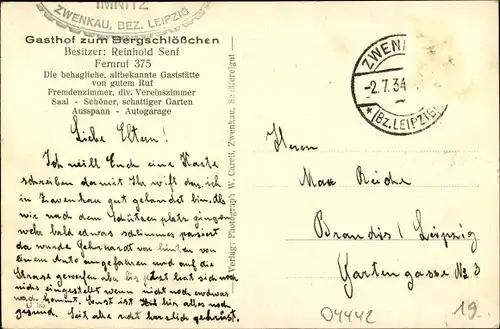 IMNITZ
ZWENKAU, BEZ. LEIPZIG
Gasthof zum Bergschlößchen
Besitzer: Reinhold Senf
Fernruf 375
Die behagliche, altbekannte Gaststätte
von gutem Ruf
Fremdenzimmer, div. Vereinszimmer
Saal - Schöner, schattiger Garten
Ausspann - Autogarage
Liebe Eltern!
Ich will Euch eine Karte
schreiben damit Ihr wißt das ich
in Zwenkau gut gelandet bin. Als
wir nach dem Schützen platz gingen
bald etwas schlimmes passiert
da wurde Gebrhardt von hinten von
einem Auto angefahren und auf die
Strasse geworfen aber bis jetzt hat sich noch
nichts eingestellt wenn nicht noch
nach kommt. Sonst ist hier alles noch
gesund. Seit alle recht herzlich gegrüsst.
Verlag: Photograph W. Carell, Zwenkau, Schließfach
ZWENKAU
-2.7.34
* (Bz. LEIPZIG)
Herrn
Max Reiche
Brandis / Leipzig
Gartengasse № 3
04442
19.